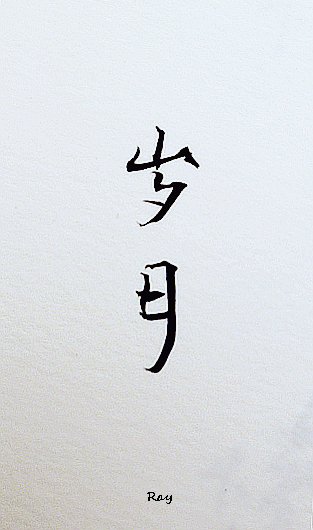 岁
月
Ray